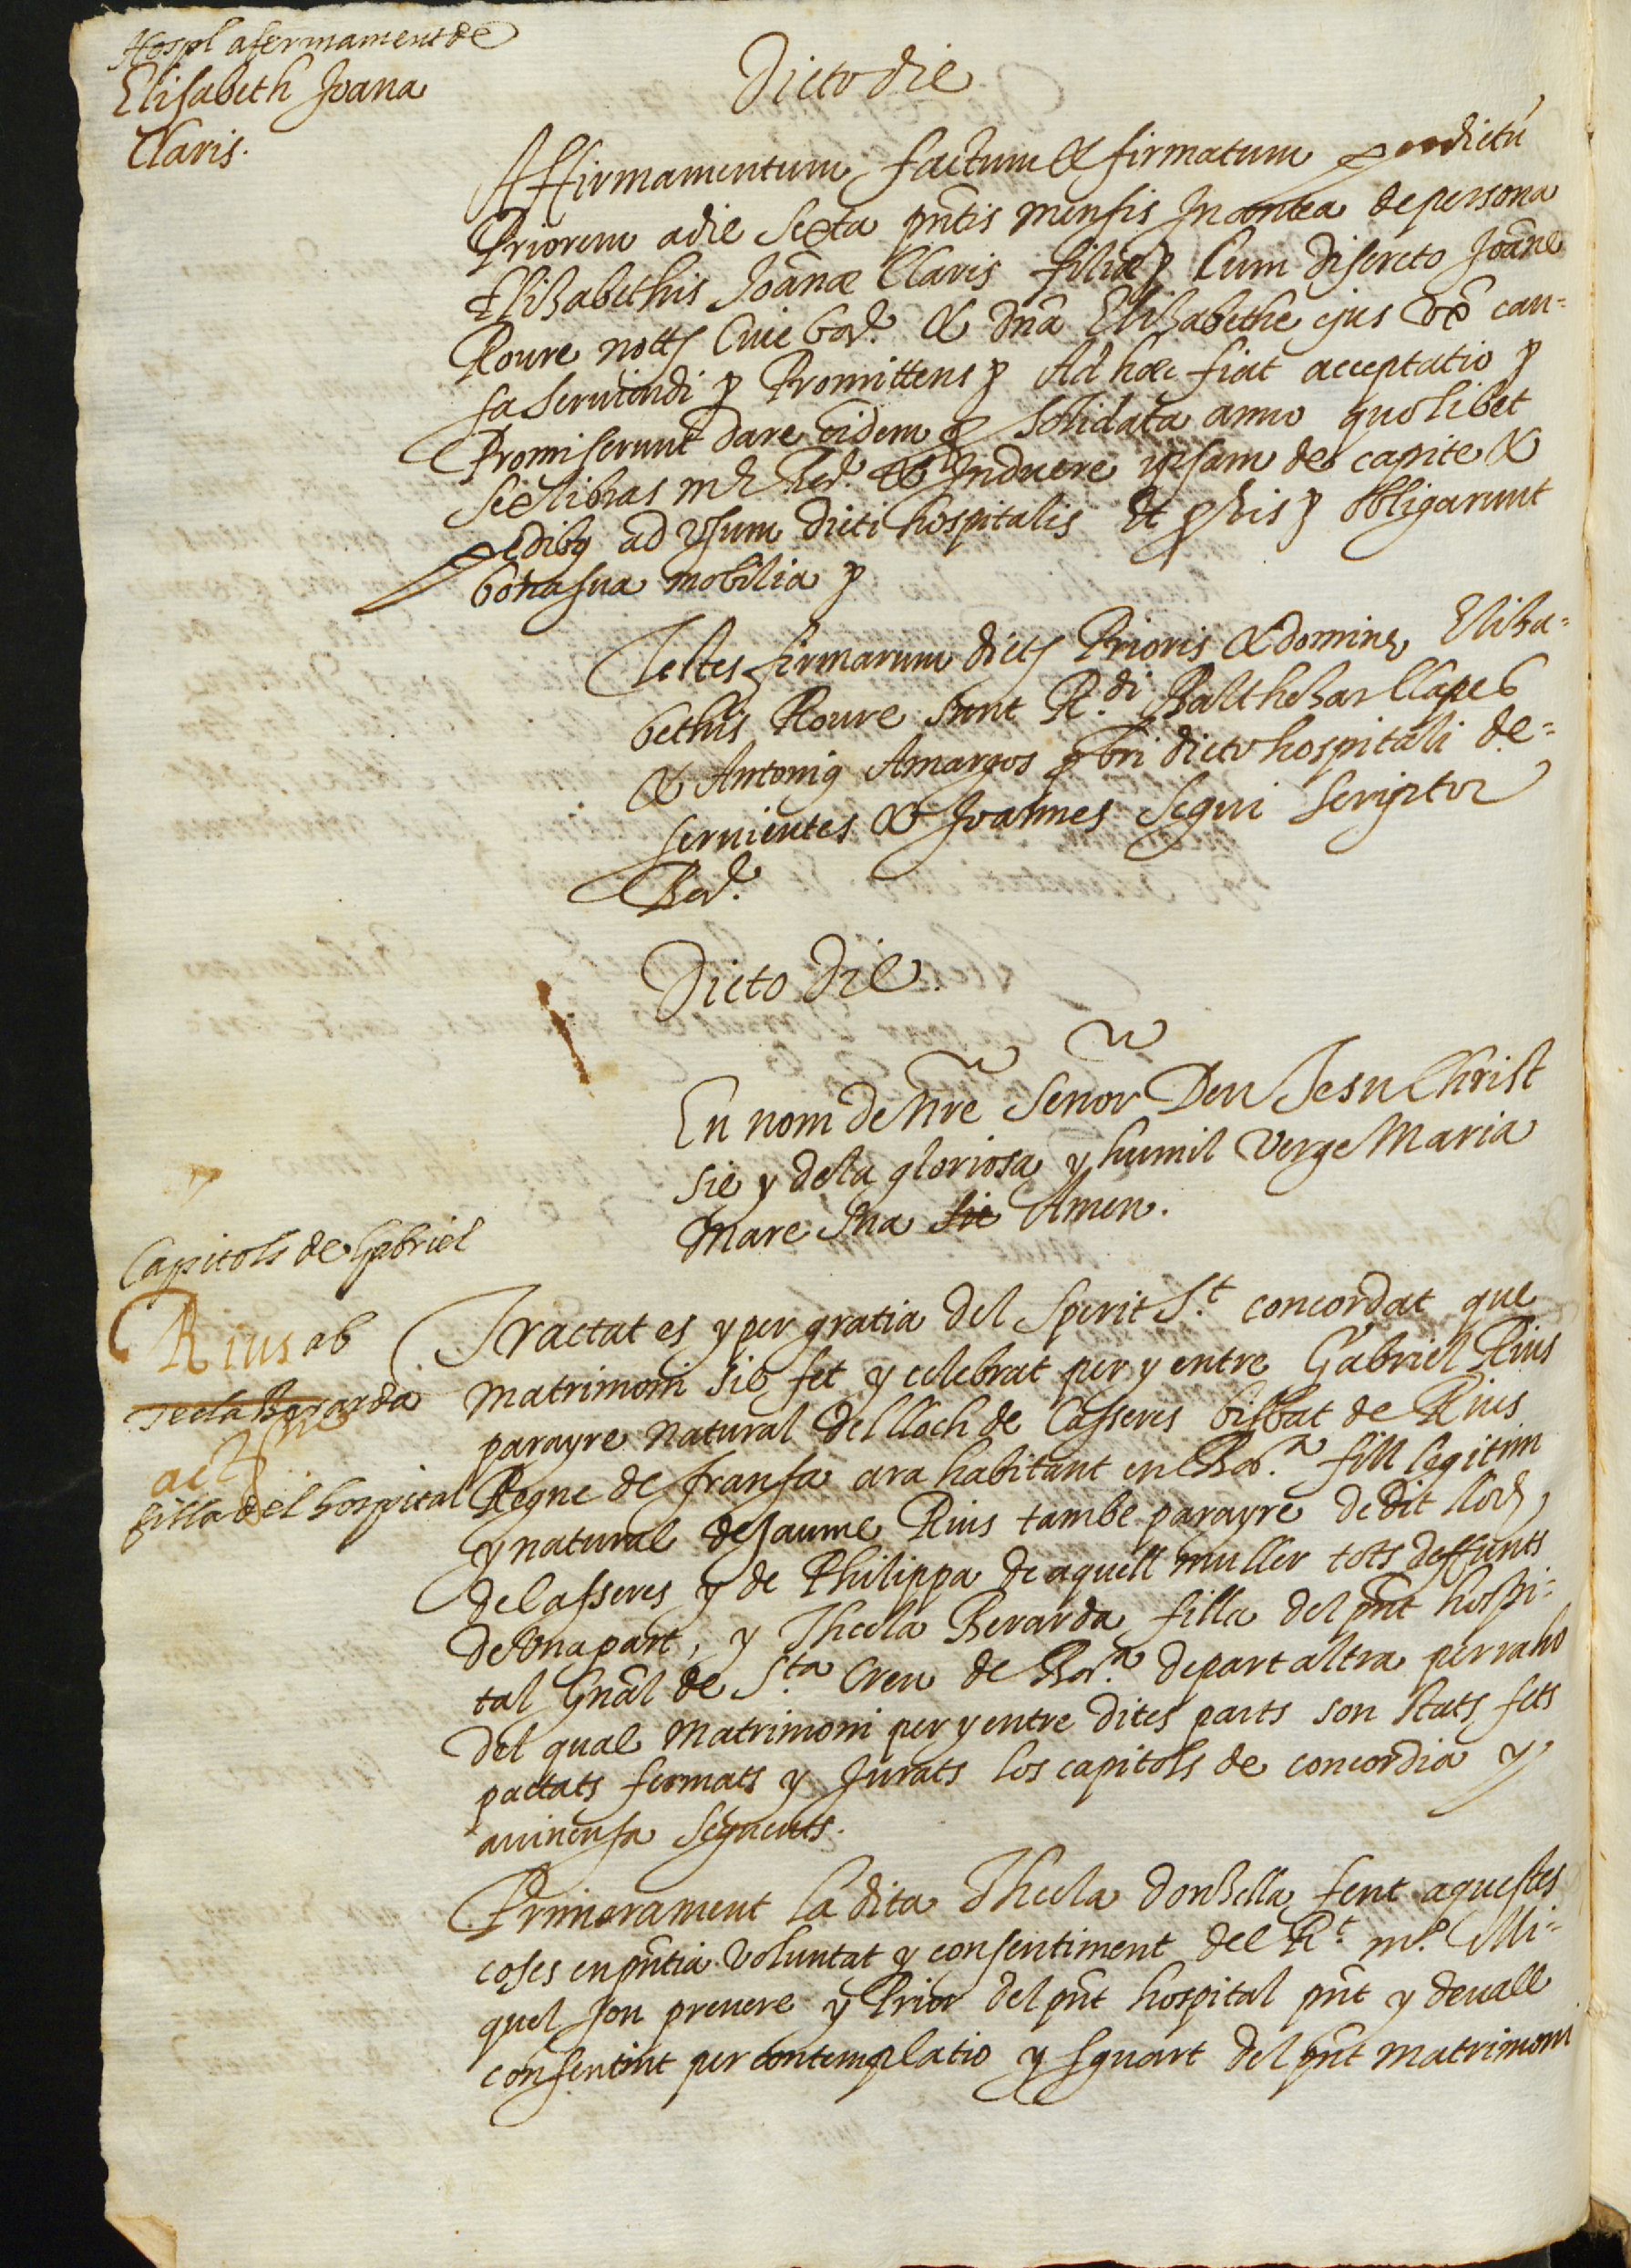 Hospl afermament de
Elisabeth Joana
Claris.
Dicto die
Affirmamentum factum & firmatum per dictũ
Priorem a die sexta pñtis mensis In antea de persona
Elizabethis Joãnæ Claris filiæ p Cum discreto Joãne
Roure nott Cive bar. & dña Elizabethe ejus vx cau=
sa serviendi p Promittens p Ad hæc fiat acceptatio p
Promiserunt dare eidem p solidata anno quolibet
sex libras Induere ipsam de capite &
pedibȝ ad usum dicti hospitalis Et p his p obligarunt
bona sua mobilia p
Testes firmarum dict Prioris & domine Eliza=
bethis Roure sunt R.di Balthezar Llapeb
& Antoniȝ Amargos p bri dicto hospitali de=
servientes & Joannes Segui scriptor
Bar.
Dicto die.
En nom de Nr̃e Señor Deu Jesu Christ
sie y dela gloriosa y humil Verge Maria
Mare sua sie Amen.
Capitols de Gabriel
Rius ab
Tecla Berarda
filla del hospital
Tractat es y per gratia del Sperit S.t concordat que
matrimoni sie fet y celebrat per y entre Gabriel Rius
parayre natural del lloch de Casseres bisbat de Rius
Regne de fransa ara habitant en Bar.a fill legitim
y natural de Jaume Rius tambe parayre de dit lloch
de Casseres y de Philippa de aquell muller tots deffunts
de Una part, y Thecla Berarda filla del pñt hospi=
tal Gñal de S.ta Creu de Bar.a de part altra per raho
del qual Matrimoni per y entre dites parts son stats fets
pactats fermats y Jurats los capitols de concordia y
avinensa seguents.
Primerament la dita Thecla donzella fent aquestes
coses en pñtia voluntat y consentiment del R.t m.º Mi=
quel Jou prevere y Prior del pñt hospital pñt y devall
consentint per contemplatio y sguart del pñt matrimoni